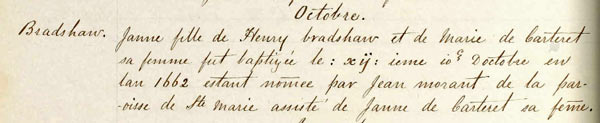 Octobre.
Bradshaw. Janne fille de Henry bradshaw et de Marie de Carteret
sa femme fut baptizée le : xij : ieme ior Doctobre en
lan 1662 estant nomée par Jean morant de la par-
oisse de Ste Marie assisté de Janne de Carteret sa fēme.